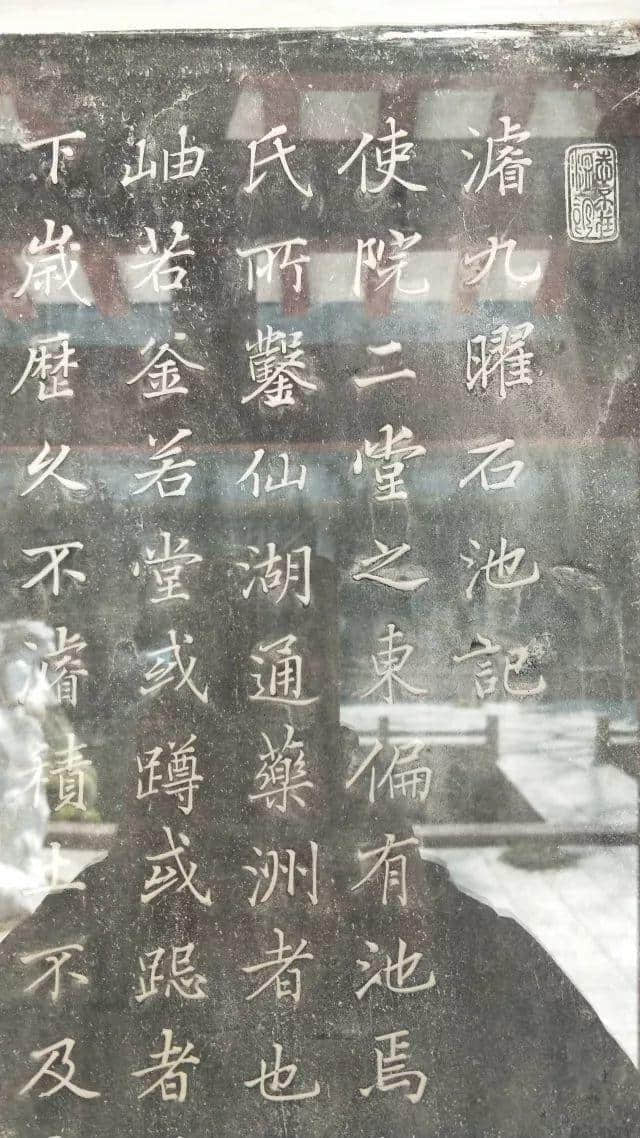 濬九曜石池記
使院二堂之東偏有池焉
氏所鑿仙湖通藥洲者也
岫若釜若堂或蹲或跽者
下歲歷久不濬積土不及